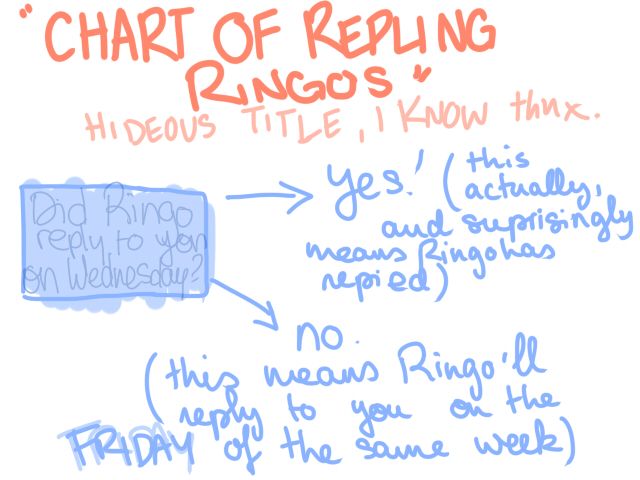 "CHART OF REPLING
RINGOS"
HIDEOUS TITLE, I KNOW thnx.
Did Ringo
reply to you
on Wednesday?
yes! (this
actually,
and suprisingly
means Ringo has
repied)
no.
(this means Ringo'll
reply to you on the
FRIDAY of the same week)